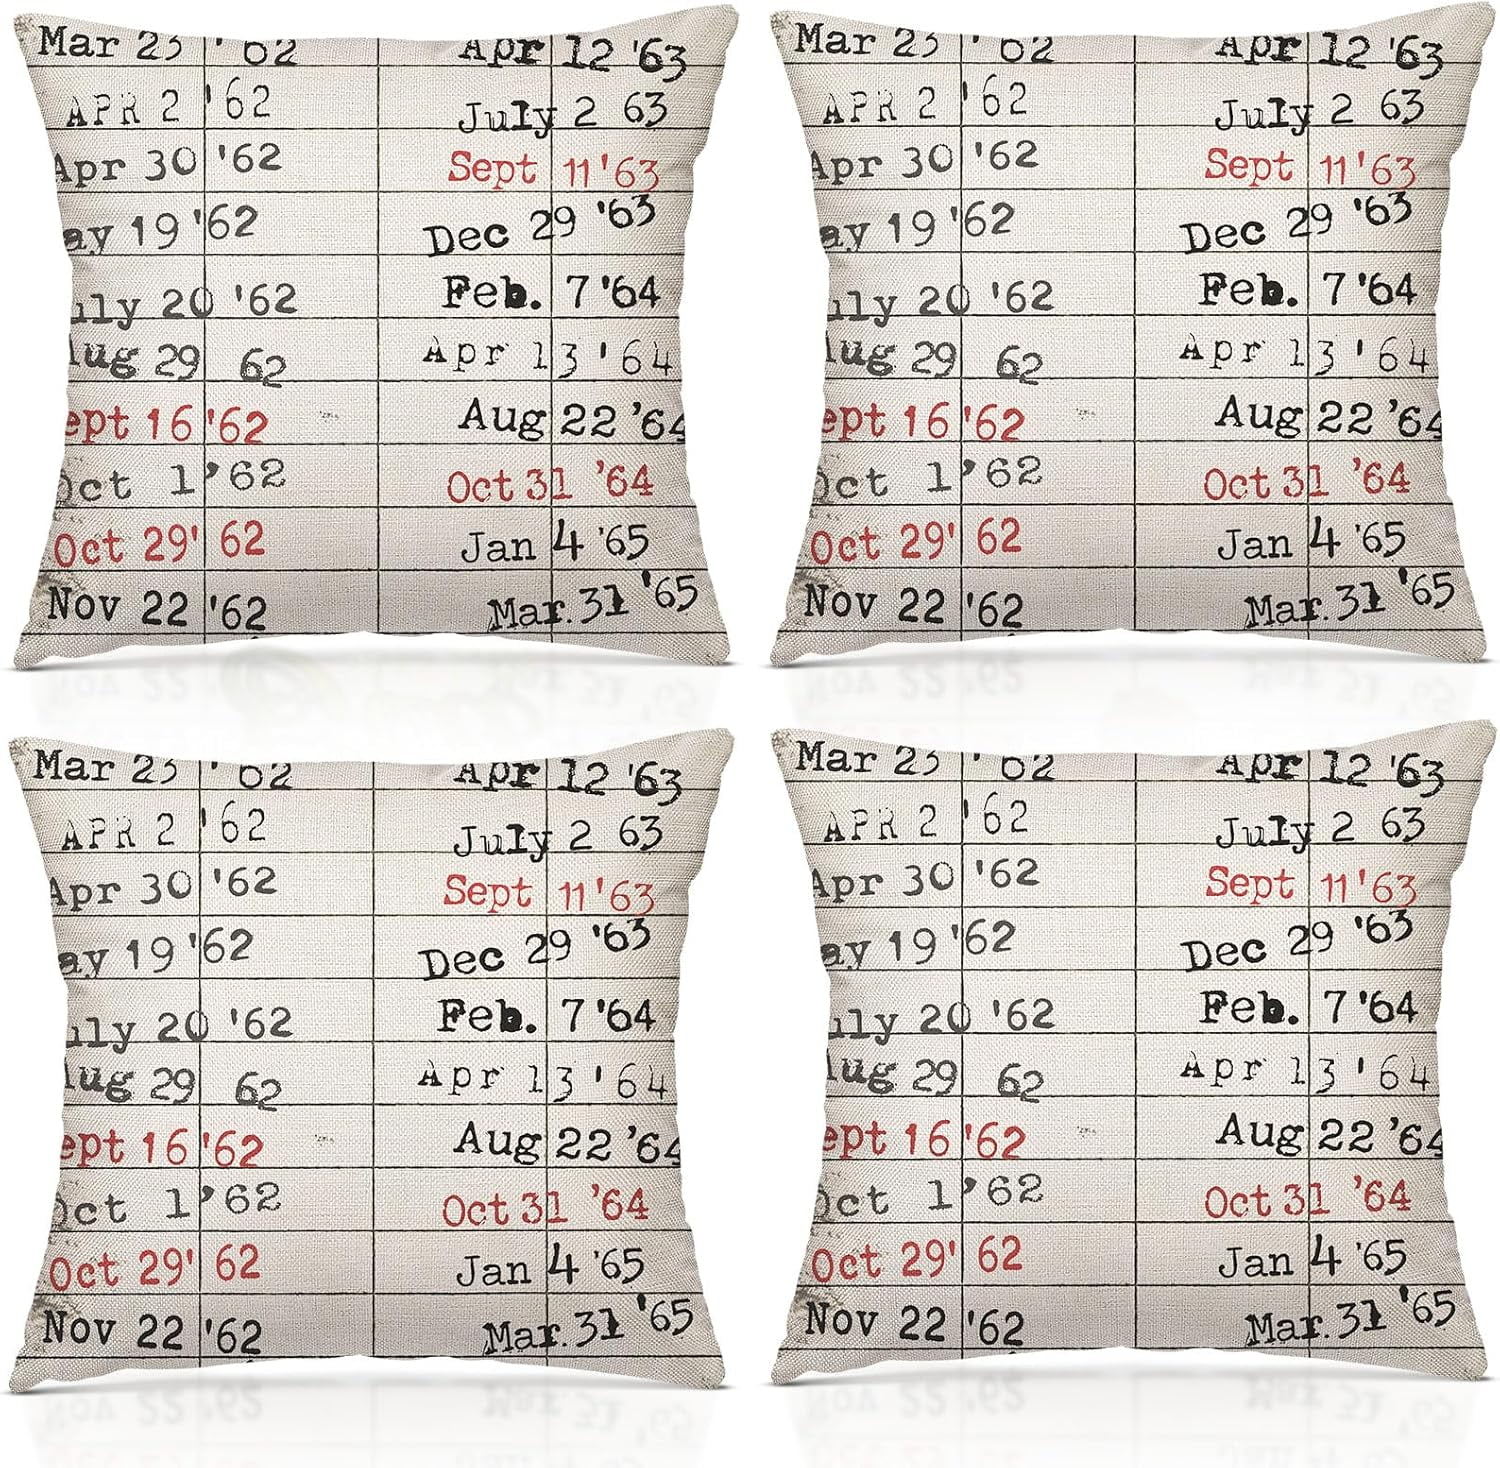 Mar 23 '62 Apr 12 '63
APR 2 '62 July 2 63
Apr 30 '62 Sept 11 '63
ay 19 '62 Dec 29 '63
uly 20 '62 Feb. 7 '64
Aug 29 62 Apr 13 '64
ept 16 '62 Aug 22 '64
Oct 1 '62 Oct 31 '64
Oct 29' 62 Jan 4 '65
Nov 22 '62 Mar. 31 '65
Mar 23 '62 Apr 12 '63
APR 2 '62 July 2 63
Apr 30 '62 Sept 11 '63
ay 19 '62 Dec 29 '63
uly 20 '62 Feb. 7 '64
Aug 29 62 Apr 13 '64
ept 16 '62 Aug 22 '64
Oct 1 '62 Oct 31 '64
Oct 29' 62 Jan 4 '65
Nov 22 '62 Mar. 31 '65
Mar 23 '62 Apr 12 '63
APR 2 '62 July 2 63
Apr 30 '62 Sept 11 '63
ay 19 '62 Dec 29 '63
uly 20 '62 Feb. 7 '64
Aug 29 62 Apr 13 '64
ept 16 '62 Aug 22 '64
Oct 1 '62 Oct 31 '64
Oct 29' 62 Jan 4 '65
Nov 22 '62 Mar. 31 '65
Mar 23 '62 Apr 12 '63
APR 2 '62 July 2 63
Apr 30 '62 Sept 11 '63
ay 19 '62 Dec 29 '63
uly 20 '62 Feb. 7 '64
Aug 29 62 Apr 13 '64
ept 16 '62 Aug 22 '64
Oct 1 '62 Oct 31 '64
Oct 29' 62 Jan 4 '65
Nov 22 '62 Mar. 31 '65